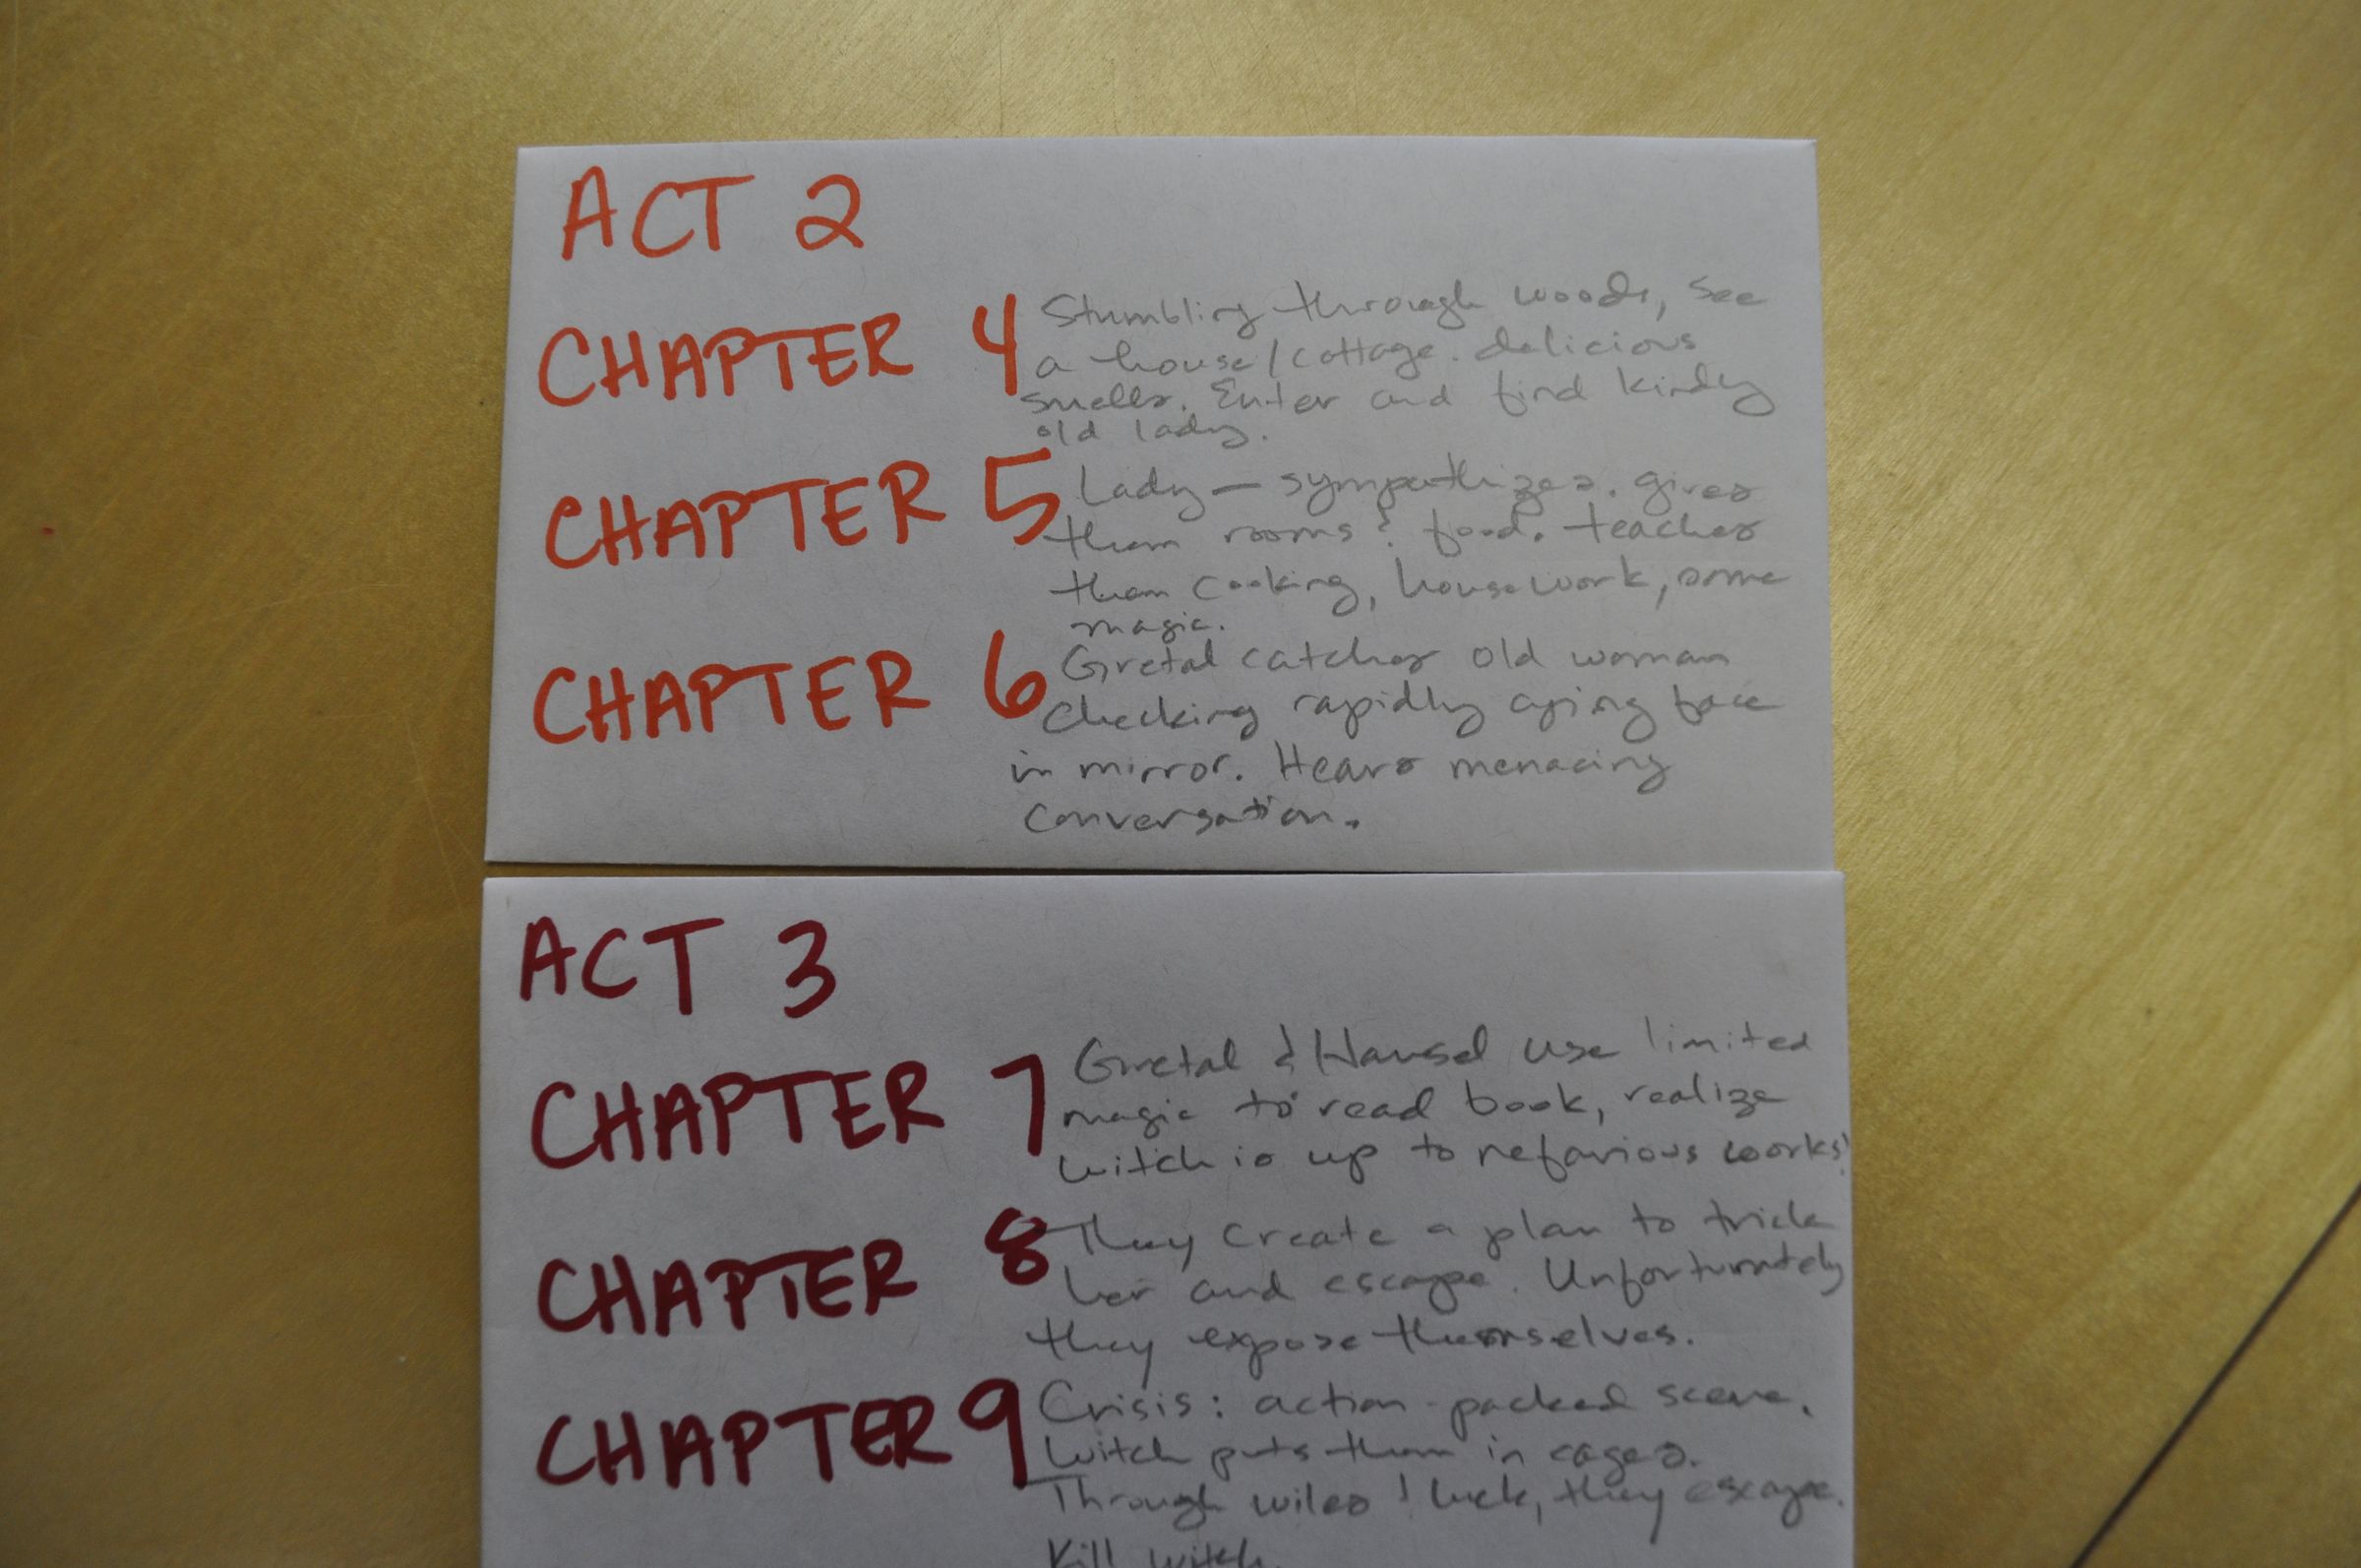 ACT 2
CHAPTER 4 Stumbling through woods, see
a house/cottage. delicious
smells. Enter and find kindly
old lady.
CHAPTER 5 Lady — sympathizes. gives
them rooms & food. teaches
them cooking, housework, some
magic.
CHAPTER 6 Gretal catches old woman
checking rapidly aging face
in mirror. Hears menacing
conversation.
ACT 3
CHAPTER 7 Gretal & Hansel use limited
magic to read book, realize
witch is up to nefarious works!
CHAPTER 8 They create a plan to trick
her and escape. Unfortunately
they expose themselves.
CHAPTER 9 Crisis: action-packed scene.
Witch puts them in cages.
Through wiles & luck, they escape.
Kill witch.